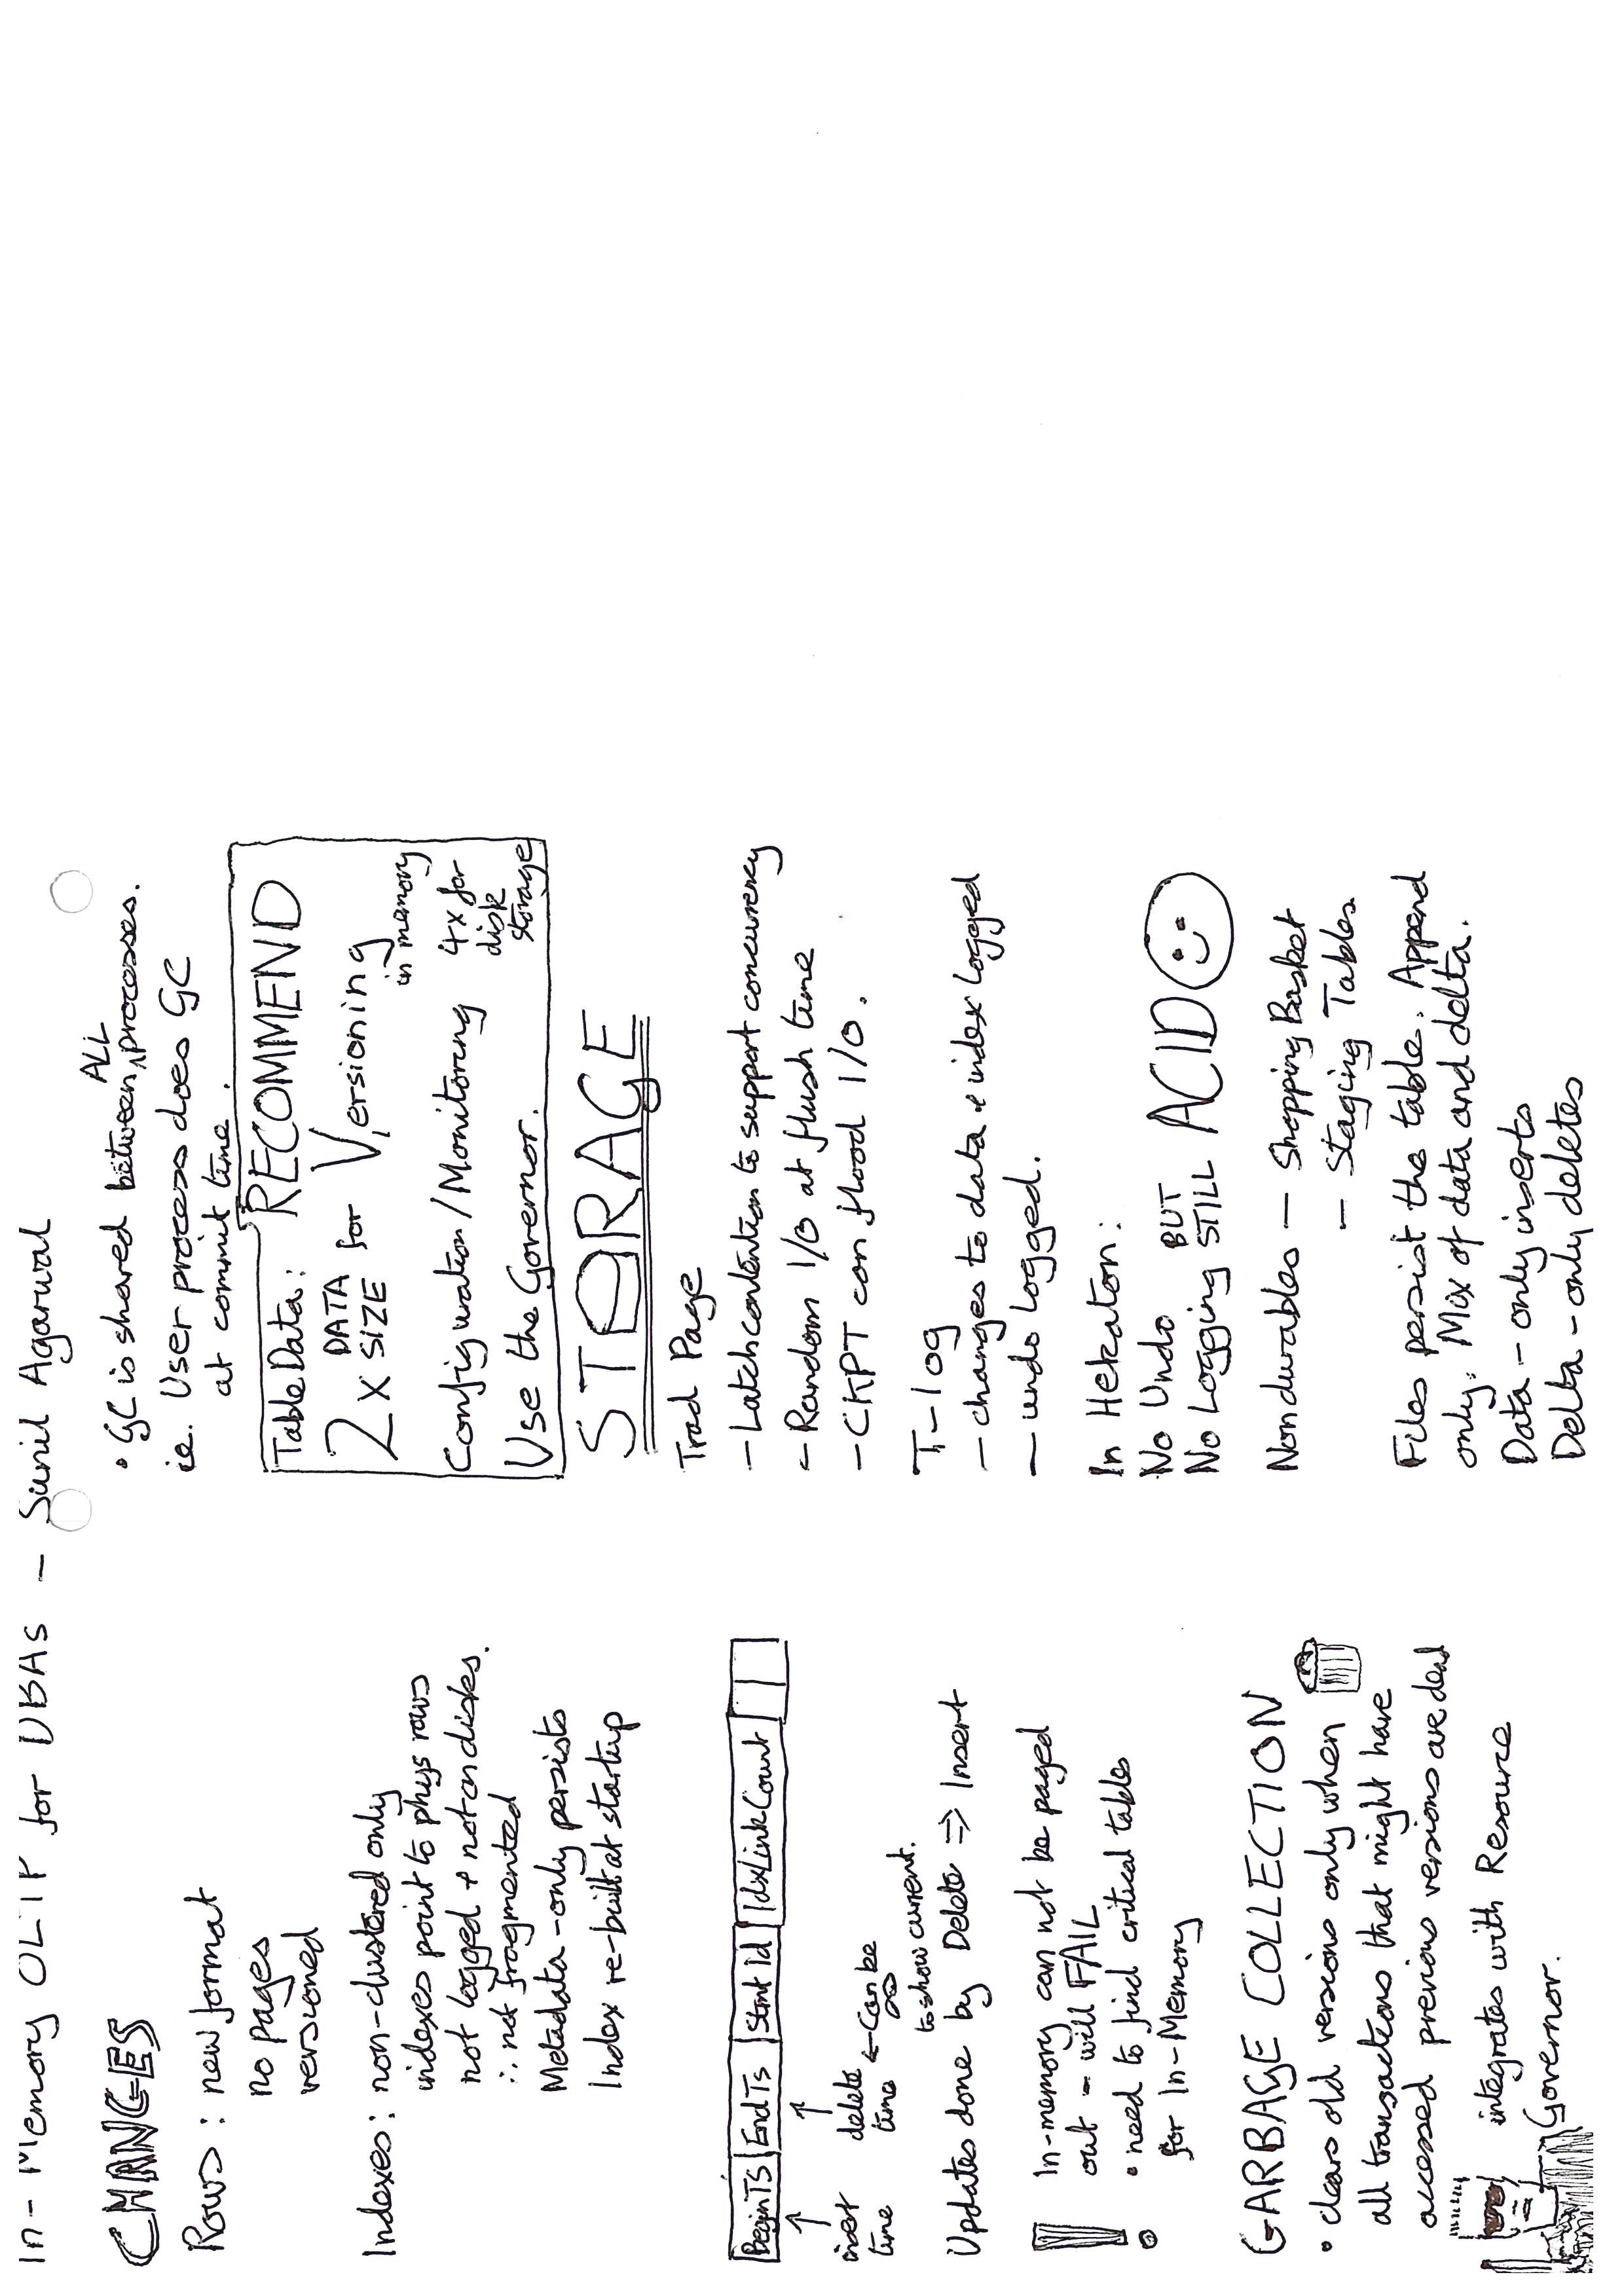 In-Memory OLTP for DBAs - Sunil Agarwal
CHANGES
Rows: new format
no pages
versioned
Indexes: non-clustered only
indexes point to phys rows
not logged + not on disks.
∴ not fragmented
Metadata - only persists
Index re-built at startup
BeginTS EndTs Stmt Id IdxLinkCount
↑ ↑
insert delete
time time ← Can be
∞
to show current.
Updates done by Delete ⇒ Insert
! In-memory can not be paged
out - will FAIL
• need to find critical tables
for In-Memory
GARBAGE COLLECTION
• clears old versions only when
all transactions that might have
accessed previous versions are dead
integrates with Resource
Governor.
• GC is shared between ALL processes.
ie. User process does GC
at commit time.
RECOMMEND
Table Data:
2x DATA SIZE for Versioning
in memory
Configuration/Monitoring
4x for
disk
storage
Use the Governor.
STORAGE
Trad Page
- Latch contention to support concurrency
- Random I/O at flush time
- CKPT can flood I/O.
T-log
- changes to data + index logged
- undo logged.
In Hekaton:
No Undo
No Logging BUT STILL ACID
Non durables - Shopping Basket
- Staging Tables
Files persist the table. Append
only. Mix of data and delta.
Data - only inserts
Delta - only deletes